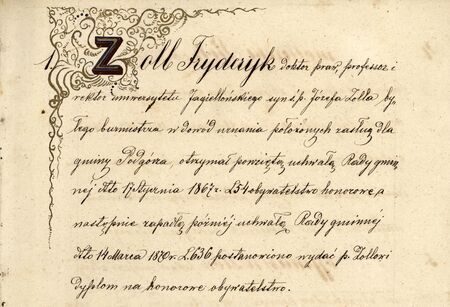 1. Zoll Fryderyk doktor praw, professor i
rektor uniwersytetu Jagiellońskiego syn ś.p. Józefa Zolla by-
łego burmistrza w dowód uznania położonych zasług dla
gminy Podgórza, otrzymał powziętą uchwałą Rady gmin-
nej dto 17 stycznia 1867 r. L 54 obywatelstwo honorowe, a
następnie zapadłą później uchwałą Rady gminnej
dto 14 Marca 1870 r. L. 636 postanowiono wydać p. Zollowi
dyplom na honorowe obywatelstwo.